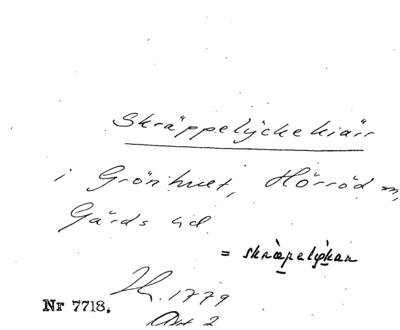 Skräppelÿckekiärr
i Grönhuet, Hörröd sn,
Gärds hd.
= skräpelykan
Nr 7718.
1779